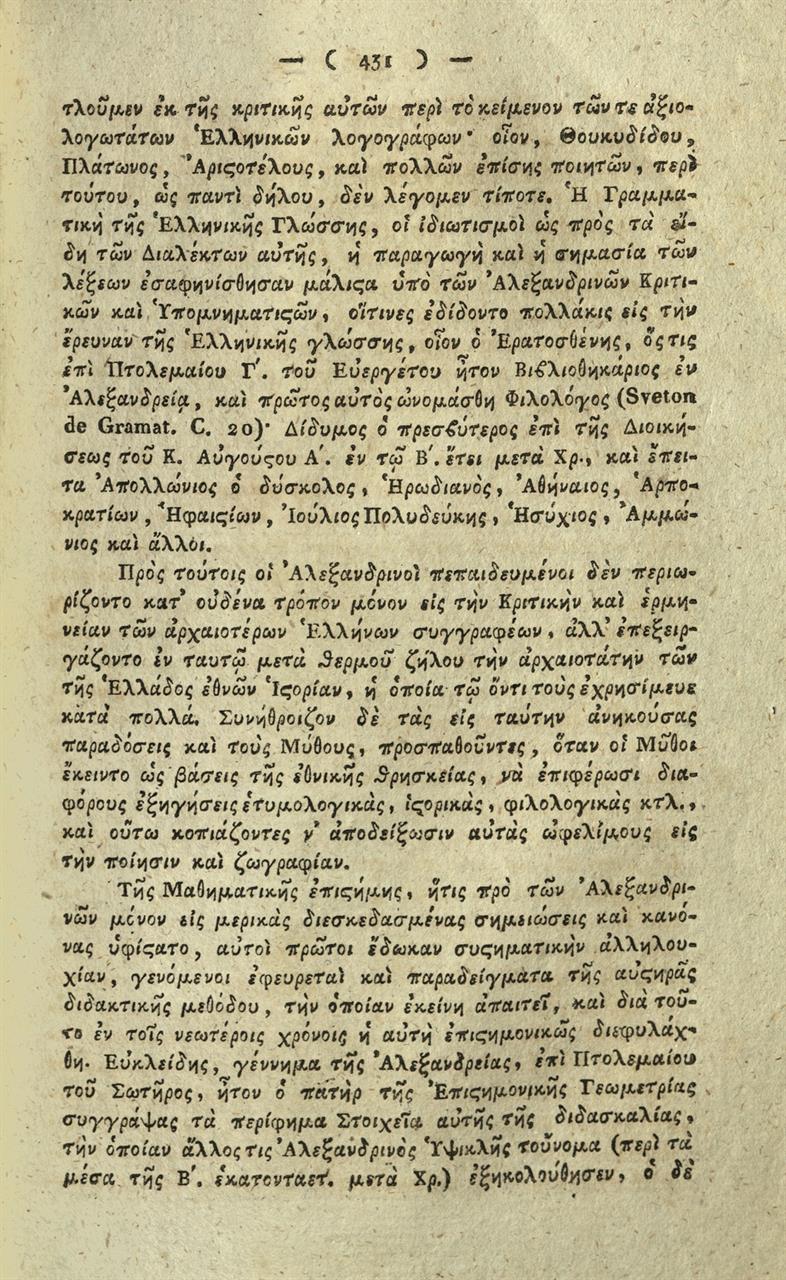 — ( 431 ) —
τλοῦμεν ἐκ τῆς κριτικῆς αὐτῶν περὶ τὸ κείμενον τῶν τε ἀξιο-
λογωτάτων Ἑλληνικῶν λογογράφων· οἷον, Θουκυδίδου,
Πλάτωνος, Ἀριϛοτέλους, καὶ πολλῶν ἐπίσης ποιητῶν, περὶ
τούτου, ὡς παντὶ δήλου, δὲν λέγομεν τίποτε. Ἡ Γραμμα-
τικὴ τῆς Ἑλληνικῆς Γλώσσης, οἱ ἰδιωτισμοὶ ὡς πρὸς τὰ εἴ-
δη τῶν Διαλέκτων αὐτῆς, ἡ παραγωγὴ καὶ ἡ σημασία τῶν
λέξεων ἐσαφηνίσθησαν μάλιϛα ὑπὸ τῶν Ἀλεξανδρινῶν Κριτι-
κῶν καὶ Ὑπομνηματιϛῶν, οἵτινες ἐδίδοντο πολλάκις εἰς τὴν
ἔρευναν τῆς Ἑλληνικῆς γλώσσης, οἷον ὁ Ἐρατοσθένης, ὅϛις
ἐπὶ Πτολεμαίου Γ΄. τοῦ Εὐεργέτου ἦτον Βιβλιοθηκάριος ἐν
Ἀλεξανδρείᾳ, καὶ πρῶτος αὐτὸς ὠνομάσθη Φιλολόγος (Sveton
de Gramat. C. 20)· Δίδυμος ὁ πρεσβύτερος ἐπὶ τῆς Διοική-
σεως τοῦ Κ. Αὐγούϛου Α΄. ἐν τῷ Β΄. ἔτει μετὰ Χρ., καὶ ἔπει-
τα Ἀπολλώνιος ὁ δύσκολος, Ἡρωδιανὸς, Ἀθήναιος, Ἁρπο-
κρατίων, Ἡφαιϛίων, Ἰούλιος Πολυδεύκης, Ἡσύχιος, Ἀμμώ-
νιος καὶ ἄλλοι.
Πρὸς τούτοις οἱ Ἀλεξανδρινοὶ πεπαιδευμένοι δὲν περιω-
ρίζοντο κατ᾽ οὐδένα τρόπον μόνον εἰς τὴν Κριτικὴν καὶ ἑρμη-
νείαν τῶν ἀρχαιοτέρων Ἑλλήνων συγγραφέων, ἀλλ᾽ ἐπεξειρ-
γάζοντο ἐν ταυτῷ μετὰ θερμοῦ ζήλου τὴν ἀρχαιοτάτην τῶν
τῆς Ἑλλάδος ἐθνῶν Ἱϛορίαν, ἡ ὁποία τῷ ὄντι τοὺς ἐχρησίμευε
κατὰ πολλά. Συνήθροιζον δὲ τὰς εἰς ταύτην ἀνηκούσας
παραδόσεις καὶ τοὺς Μύθους, προσπαθοῦντες, ὅταν οἱ Μῦθοι
ἔκειντο ὡς βάσεις τῆς ἐθνικῆς θρησκείας, νὰ ἐπιφέρωσι δια-
φόρους ἐξηγήσεις ἐτυμολογικὰς, ἱϛορικὰς, φιλολογικὰς κτλ.,
καὶ οὕτω κοπιάζοντες ν᾽ ἀποδείξωσιν αὐτὰς ὠφελίμους εἰς
τὴν ποίησιν καὶ ζωγραφίαν.
Τῆς Μαθηματικῆς ἐπιϛήμης, ἥτις πρὸ τῶν Ἀλεξανδρι-
νῶν μόνον εἰς μερικὰς διεσκεδασμένας σημειώσεις καὶ κανό-
νας ὑφίϛατο, αὐτοὶ πρῶτοι ἔδωκαν συϛηματικὴν ἀλληλου-
χίαν, γενόμενοι ἐφευρεταὶ καὶ παραδείγματα τῆς αὐϛηρᾶς
διδακτικῆς μεθόδου, τὴν ὁποίαν ἐκείνη ἀπαιτεῖ, καὶ διὰ τοῦ-
το ἐν τοῖς νεωτέροις χρόνοις ἡ αὐτὴ ἐπιϛημονικῶς διεφυλάχ-
θη. Εὐκλείδης, γέννημα τῆς Ἀλεξανδρείας, ἐπὶ Πτολεμαίου
τοῦ Σωτῆρος, ἦτον ὁ πατὴρ τῆς Ἐπιϛημονικῆς Γεωμετρίας
συγγράψας τὰ περίφημα Στοιχεῖα αὐτῆς τῆς διδασκαλίας,
τὴν ὁποίαν ἄλλος τις Ἀλεξανδρινὸς Ὑψικλῆς τοὔνομα (περὶ τὰ
μέσα τῆς Β΄. ἑκατονταετ. μετὰ Χρ.) ἐξηκολούθησεν, ὁ δὲ